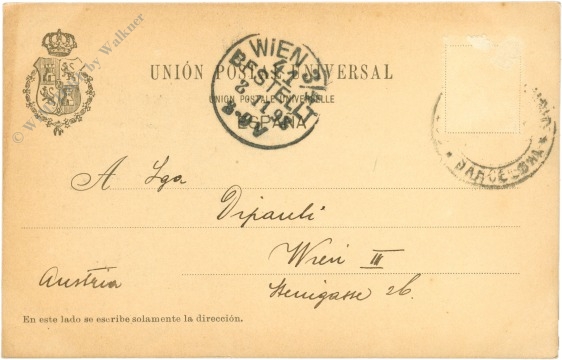 © W by Walkner
WIEN 3/1
BESTELLT
UNIÓN POSTAL UNIVERSAL
UNION POSTALE UNIVERSELLE
ESPAÑA
BARCELONA
A Sga
Dipauli
Wien III
Austria
26.
En este lado se escribe solamente la dirección.